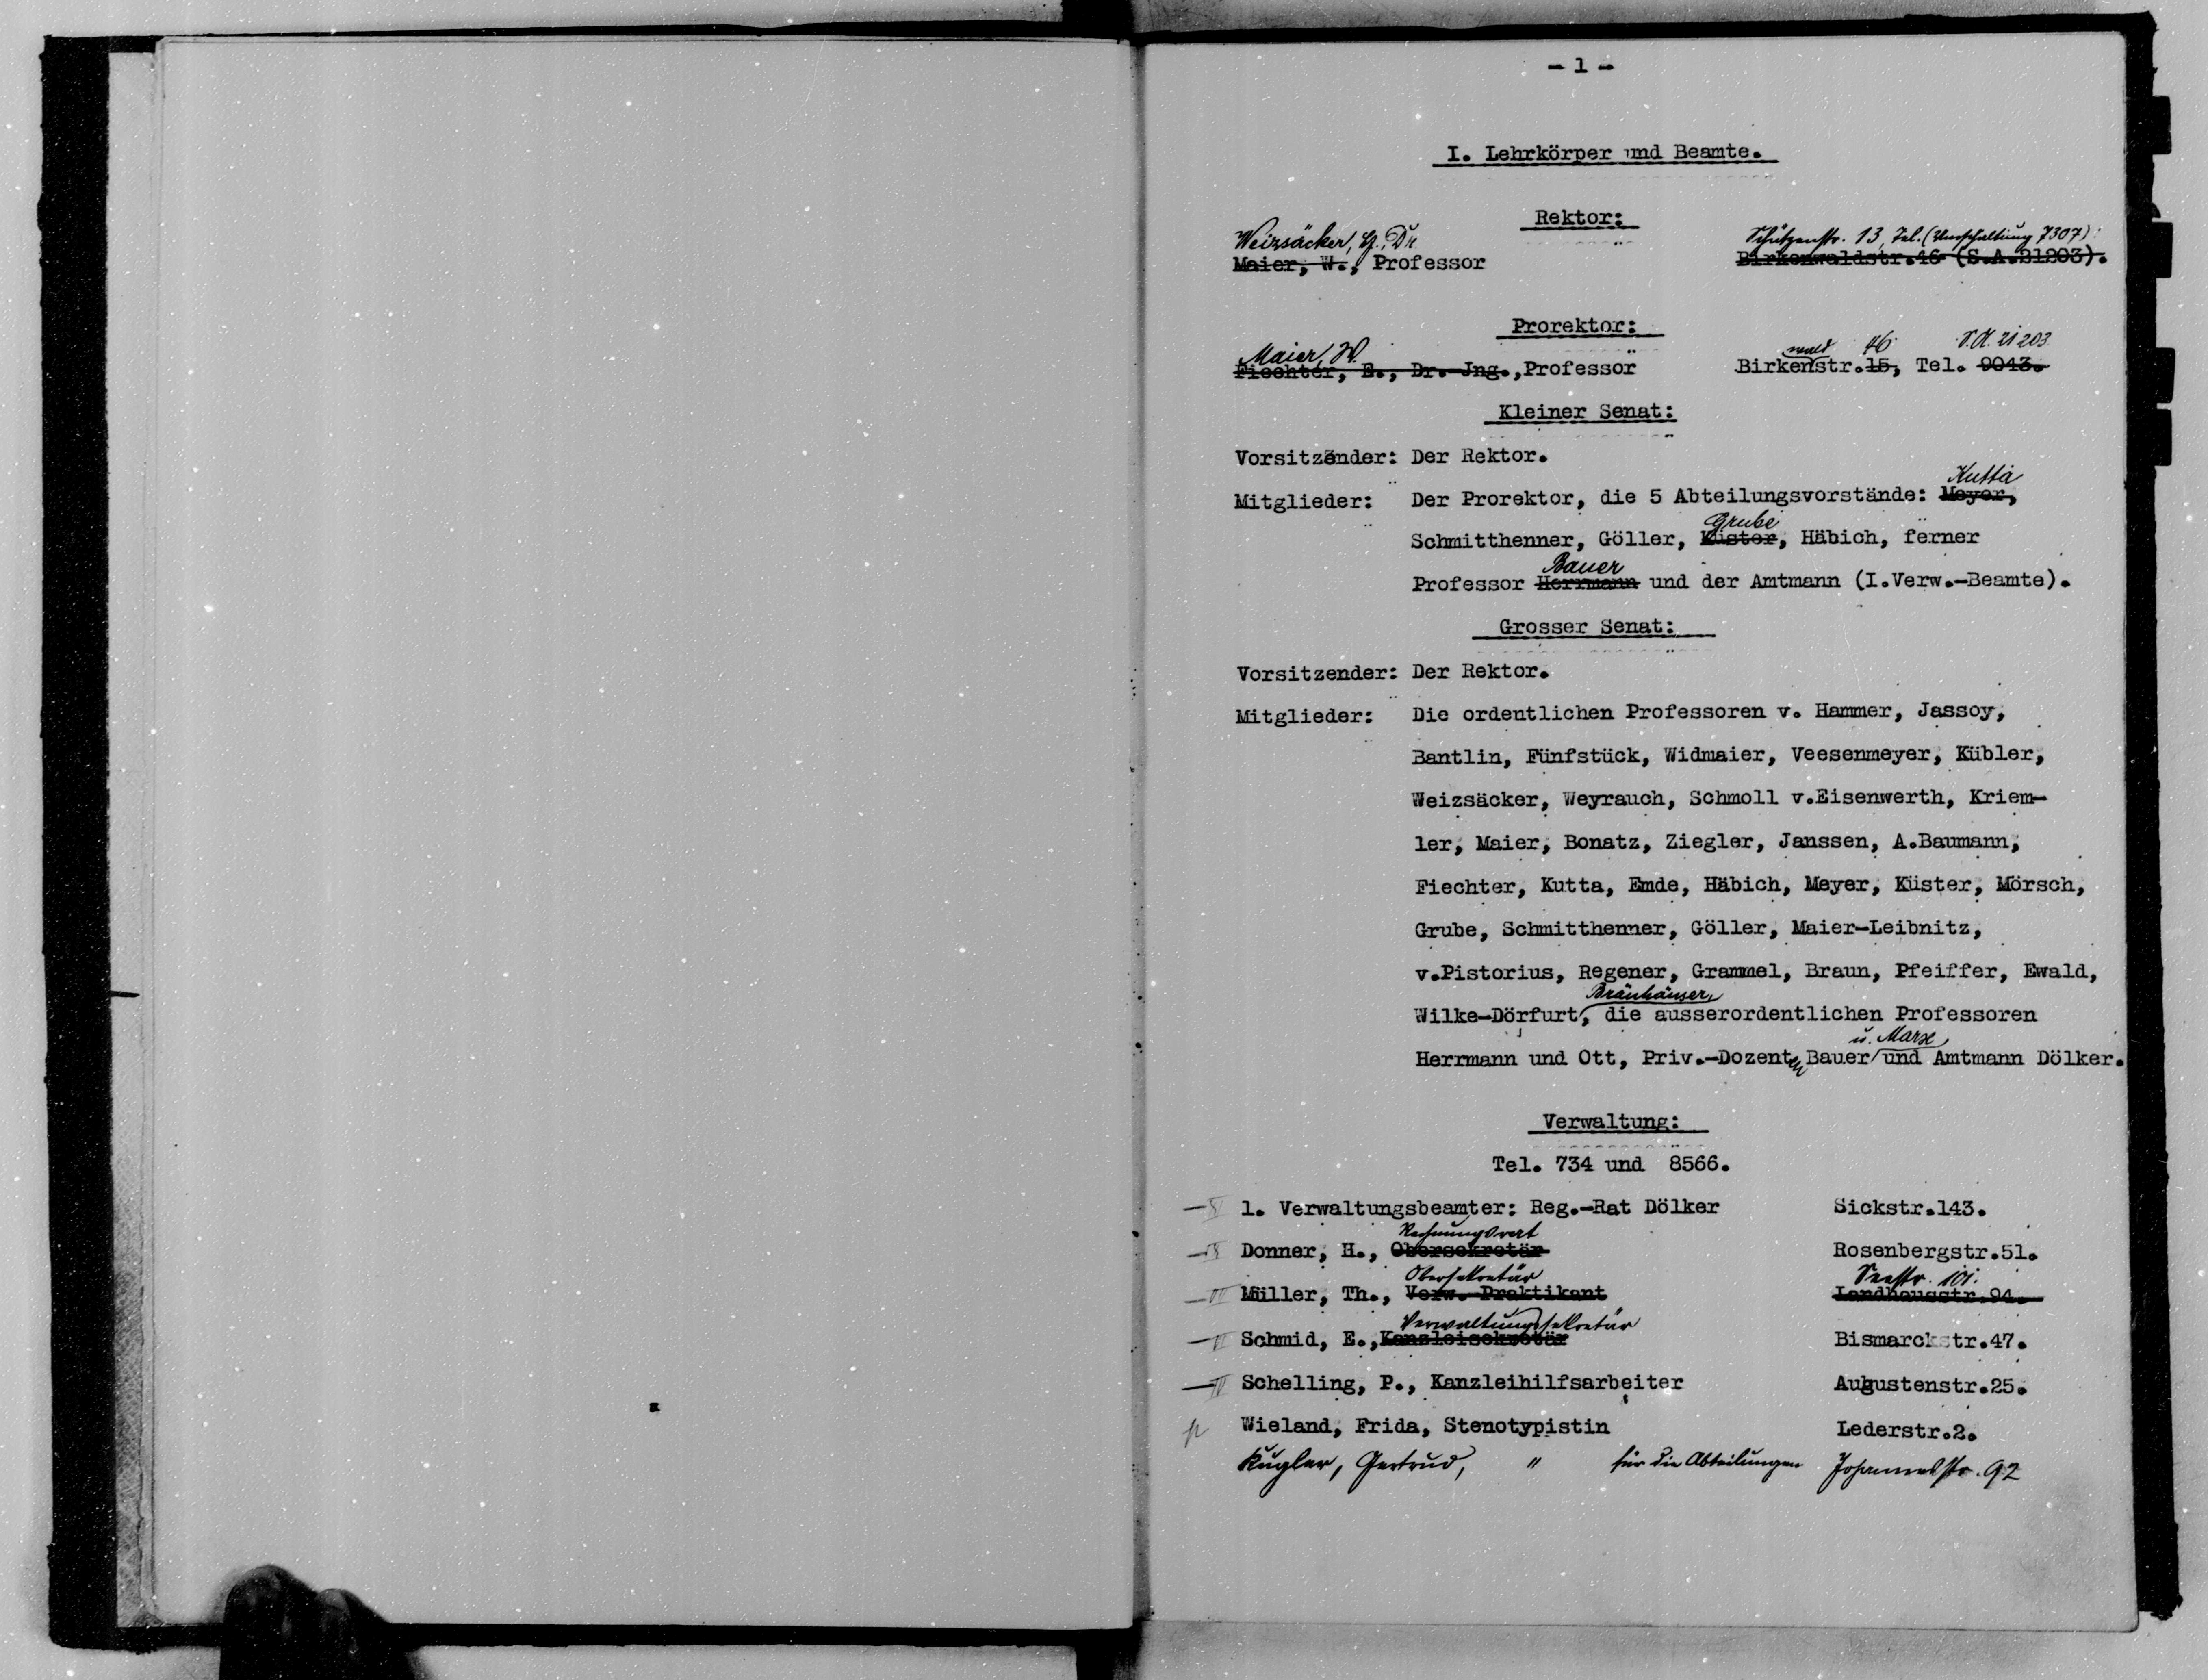 - 1 -
I. Lehrkörper und Beamte.
Rektor:
Weizsäcker, G. Dr. Schützenstr. 13, Tel. (Umschaltung 7307)
Maier, W., Professor Birkenwaldstr.46 (S.A.21203).
Prorektor:
Maier, W. wald 46 S.A. 21203
Fiechter, E., Dr.-Jng.,Professor Birkenstr.15, Tel. 9043.
Kleiner Senat:
Vorsitzender: Der Rektor.
Kutta
Mitglieder: Der Prorektor, die 5 Abteilungsvorstände: Meyer,
Grube
Schmitthenner, Göller, Küster, Häbich, ferner
Bauer
Professor Herrmann und der Amtmann (I.Verw.-Beamte).
Grosser Senat:
Vorsitzender: Der Rektor.
Mitglieder: Die ordentlichen Professoren v. Hammer, Jassoy,
Bantlin, Fünfstück, Widmaier, Veesenmeyer, Kübler,
Weizsäcker, Weyrauch, Schmoll v.Eisenwerth, Kriem-
ler, Maier, Bonatz, Ziegler, Janssen, A.Baumann,
Fiechter, Kutta, Emde, Häbich, Meyer, Küster, Mörsch,
Grube, Schmitthenner, Göller, Maier-Leibnitz,
v.Pistorius, Regener, Grammel, Braun, Pfeiffer, Ewald,
Bräuhäuser,
Wilke-Dörfurt, die ausserordentlichen Professoren
u. Marx
Herrmann und Ott, Priv.-Dozenten Bauer und Amtmann Dölker.
Verwaltung:
Tel. 734 und 8566.
1. Verwaltungsbeamter: Reg.-Rat Dölker Sickstr.143.
Rechnungsrat
Donner, H., Obersekretär Rosenbergstr.51.
Obersekretär Seestr. 101.
Müller, Th., Verw.-Praktikant Landhausstr.94.
Verwaltungssekretär
Schmid, E.,Kanzleisekretär Bismarckstr.47.
Schelling, P., Kanzleihilfsarbeiter Augustenstr.25.
Wieland, Frida, Stenotypistin Lederstr.2.
Kugler, Gertrud, " für die Abteilungen Johannesstr. 92